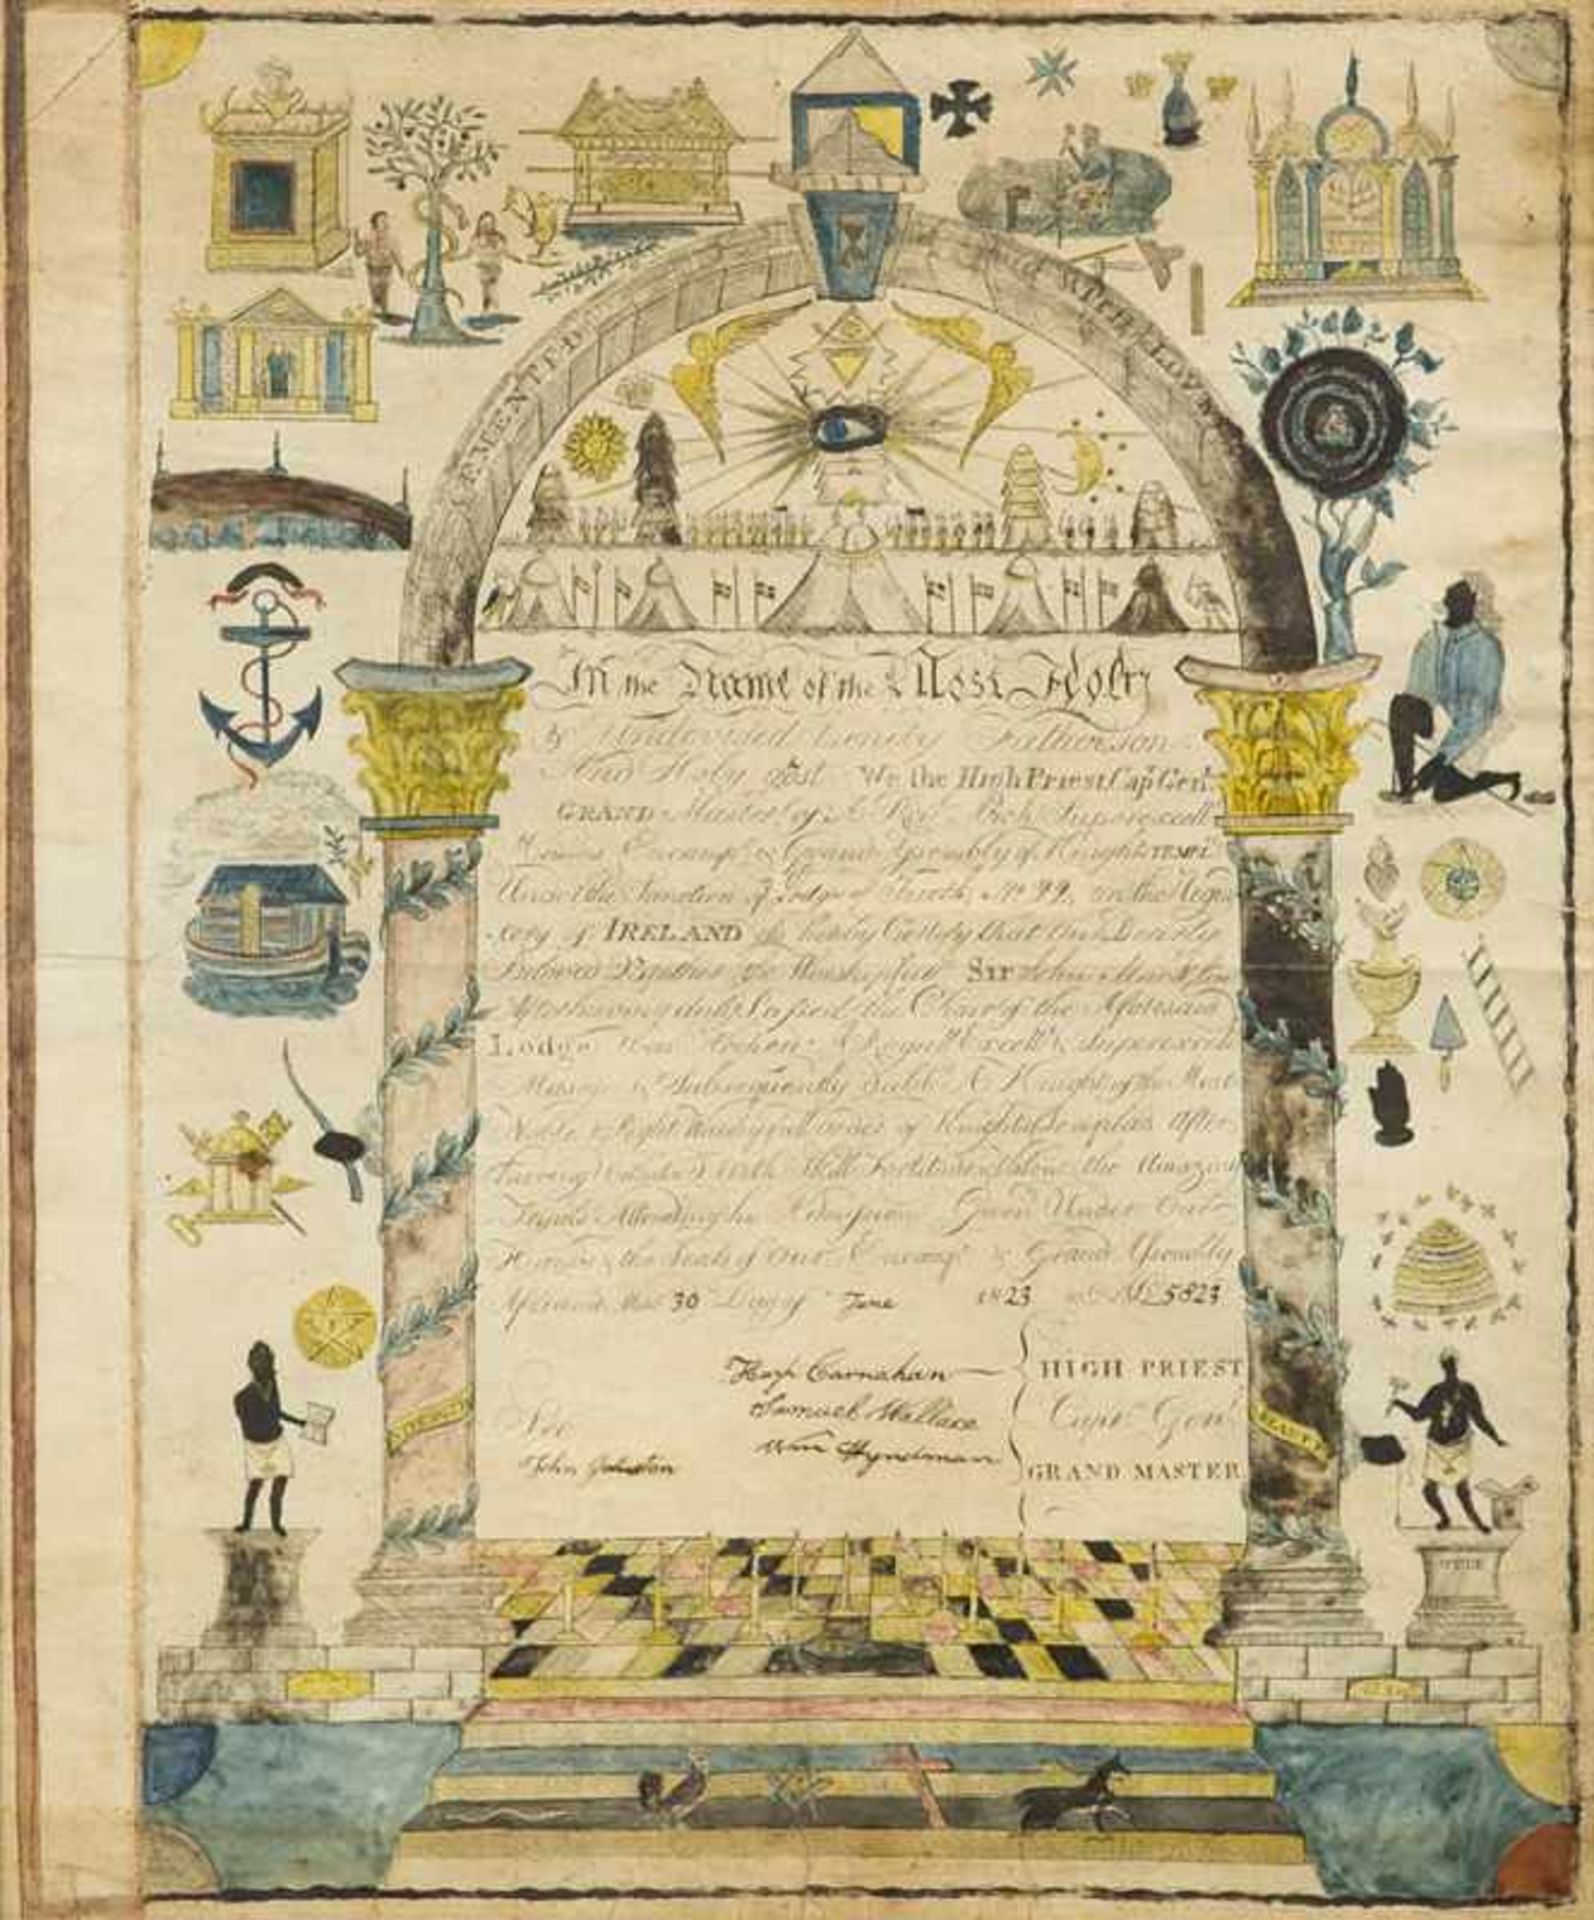 CEMENTED WITH LOVE
In the Name of the Most Holy
& Undevided Trinity Father Son
And Holy Gost We the High Priest Capn Genl
GRAND Master of Arch Superexcell
Encampt & Grand Assembly of Knights TEMPL
Under the Sanction of Lodge of Truth, No 99, on the Regis
try of IRELAND do hereby Certify that Our Dearly
Beloved Brother the Worshipfull Sir John
After having duly Passed the Chair of the Aforesaid
Lodge Was Arch Excell & Superexcell
Mason & Subsequently dubb'd A Knight of the Most
Noble & Right Worshipfull Order of Knights Templars After
having with Skill Fortitude & Valour the Amazing
Trials Attending his Admission Given Under Our
Hands & the Seal of Our Encampt & Grand Assembly
Aforesaid this 30 Day of June 1823 5823
Harp Carnahan HIGH PRIEST
Samuel Wallace Captn Genl
Wm Hyndman GRAND MASTER
Sec
John Johnston
STRENGTH
BEAUTY